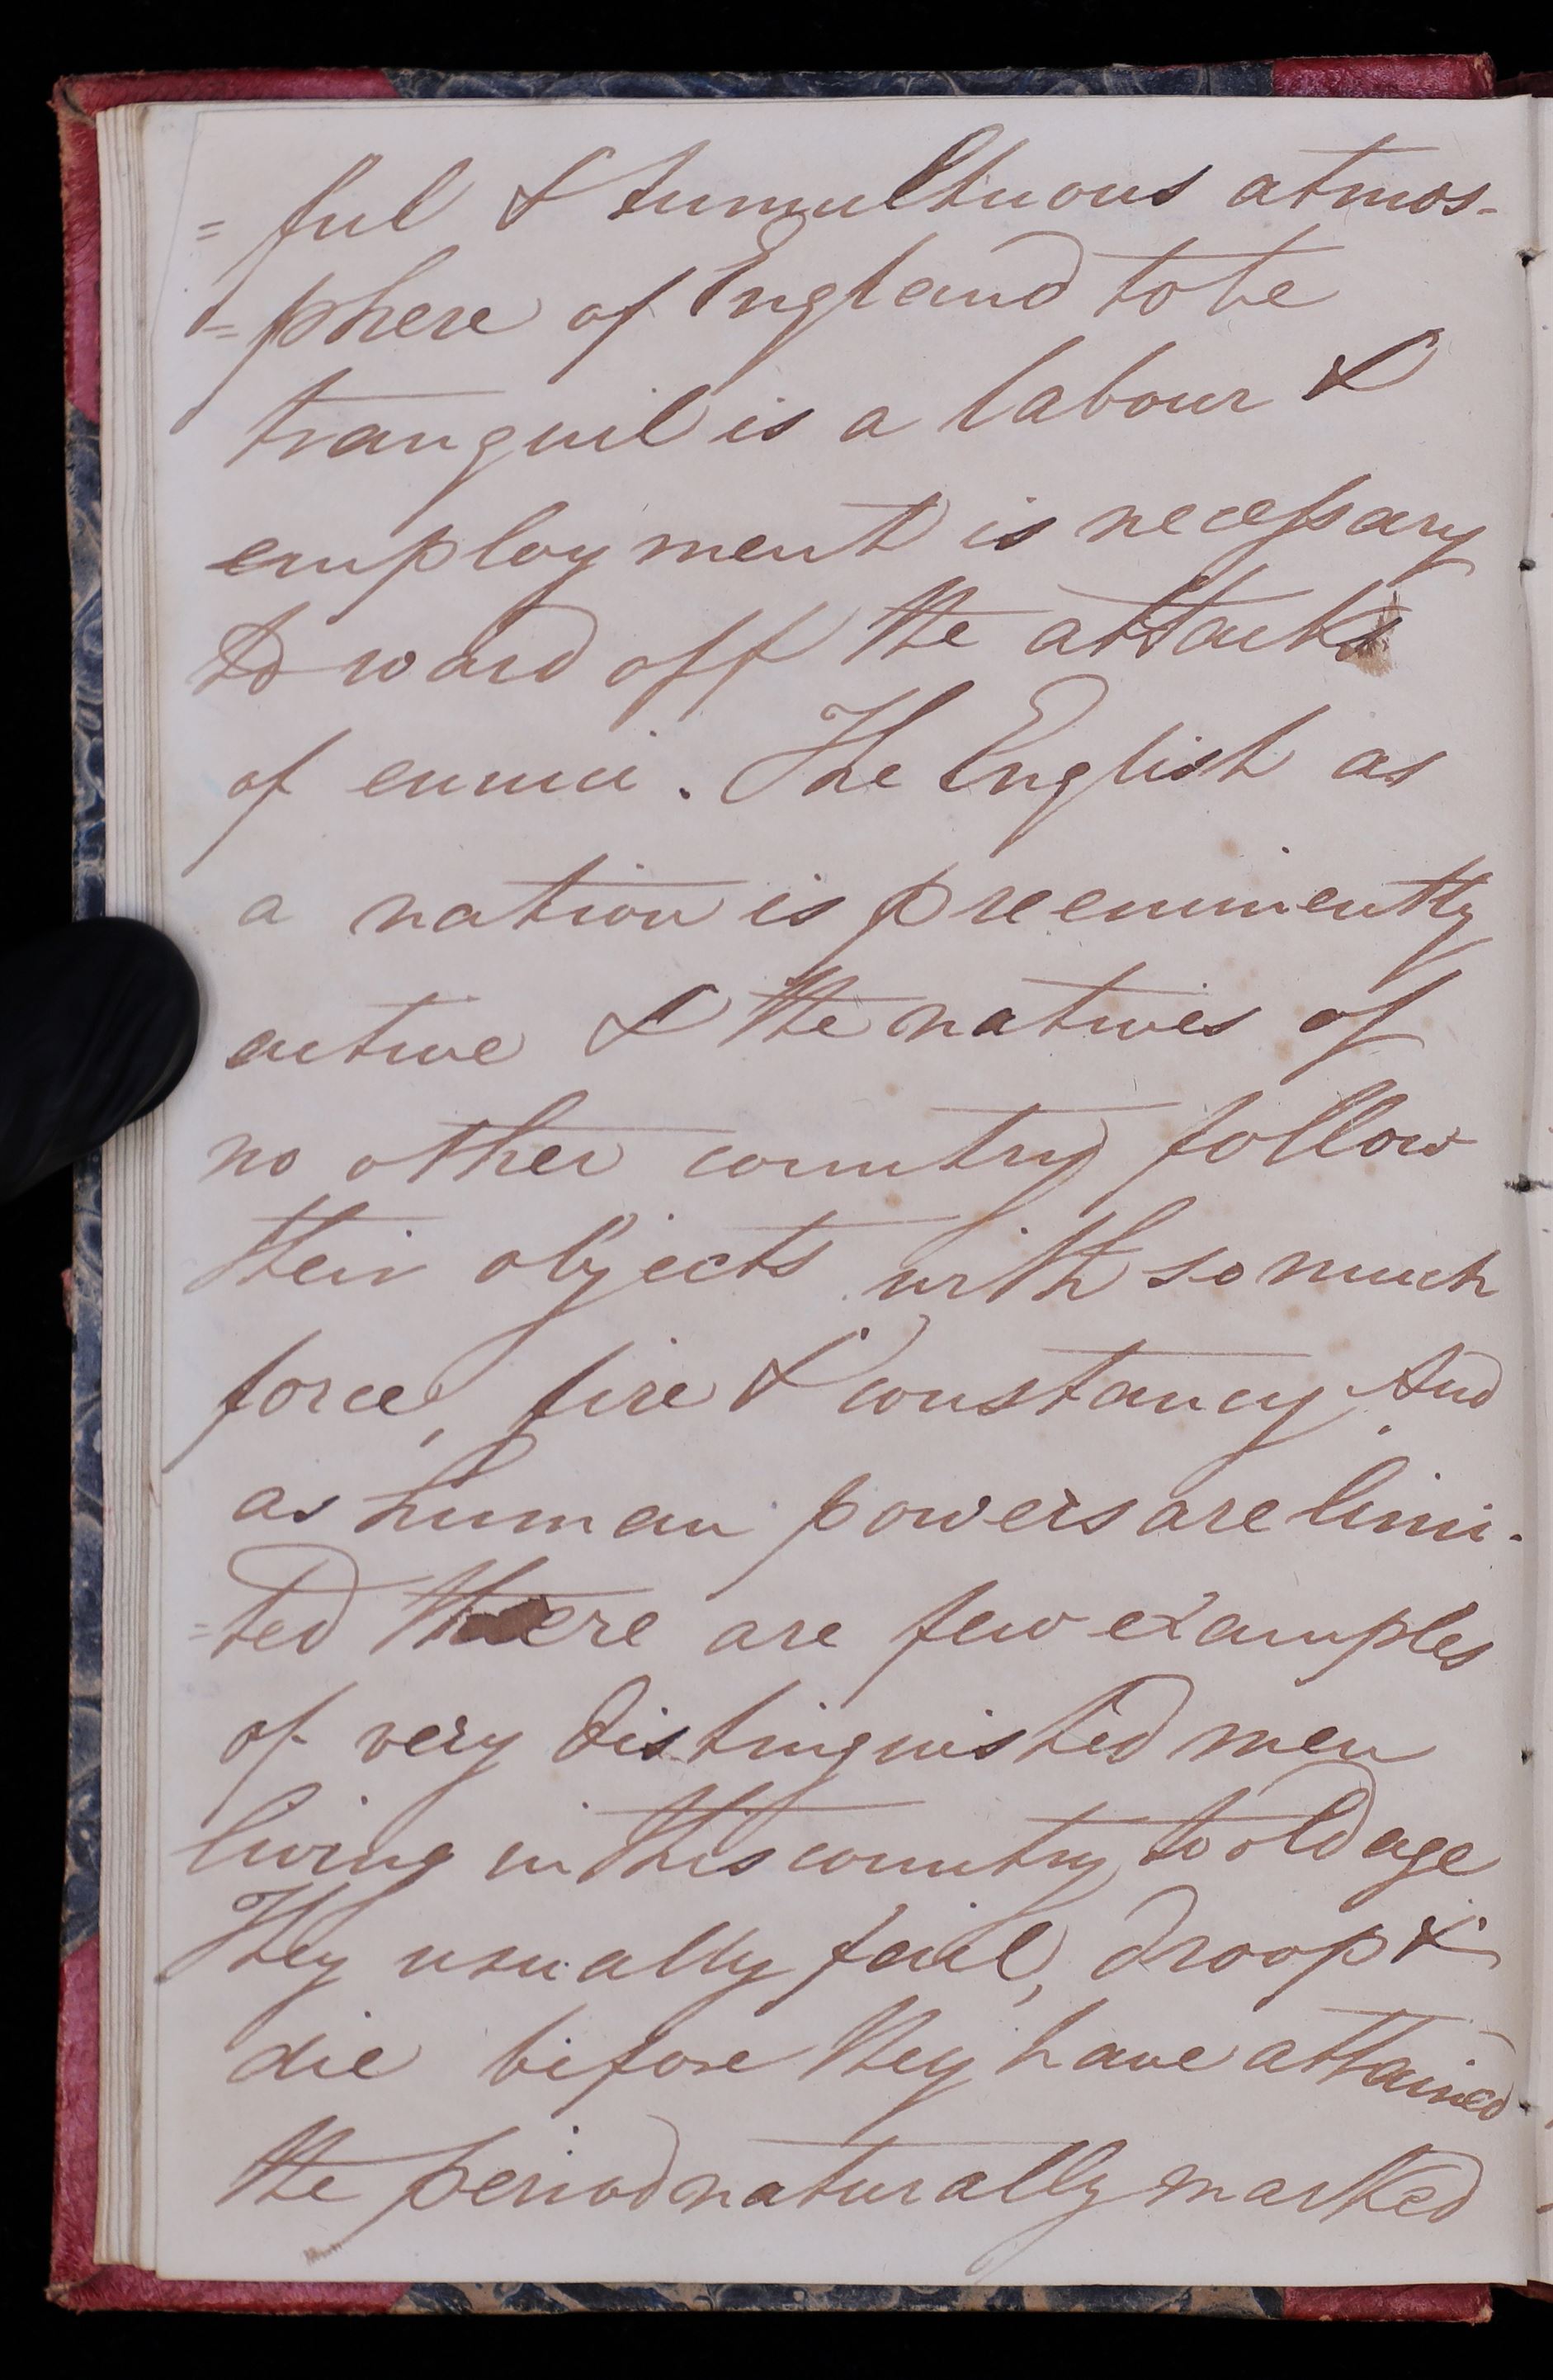 = ful & tumultuous atmos-
= phere of England to be
tranquil is a labour &
employment is necessary
to ward off the attacks
of ennui. The English as
a nation is preeminently
active & the natives of
no other country follow
their objects with so much
force, fire & constancy. And
as human powers are limi-
=ted there are few examples
of very distinguished men
living in this country to old age
They usually fail, droop &
die before they have attained
the period naturally marked